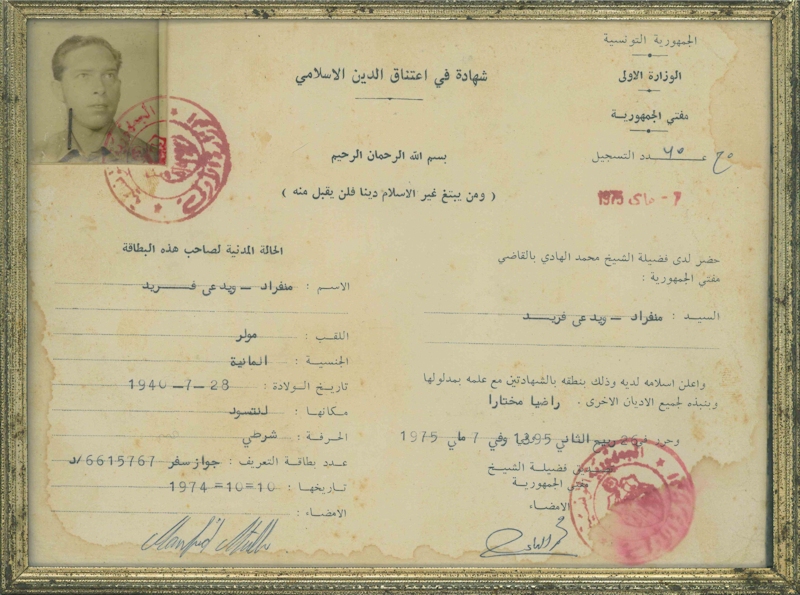 الجمهورية التونسية
الوزارة الاولى
مفتي الجمهورية
عدد التسجيل
7 - ماي 1975
شهادة في اعتناق الدين الاسلامي
بسم الله الرحمان الرحيم
( ومن يبتغ غير الاسلام دينا فلن يقبل منه )
حضر لدى فضيلة الشيخ محمد الهادي بالقاضي
مفتي الجمهورية :
السيد : منفراد - ويدعى فريد
واعلن اسلامه لديه وذلك بنطقه بالشهادتين مع علمه بمدلولها
وبنبذه لجميع الاديان الاخرى . راضيا مختارا
وحرر في 26 ربيع الثاني 1395 وفي 7 ماي 1975
فضيلة الشيخ
مفتي الجمهورية
الامضاء
الحالة المدنية لصاحب هذه البطاقة
الاسم : منفراد - ويدعى فريد
اللقب : مولر
الجنسية : المانية
تاريخ الولادة : 28-7-1940
مكانها : لنتسود
الحرفة : شرطي
عدد بطاقة التعريف : جواز سفر 6615767/د
تاريخها : 10=10=1974
الامضاء :